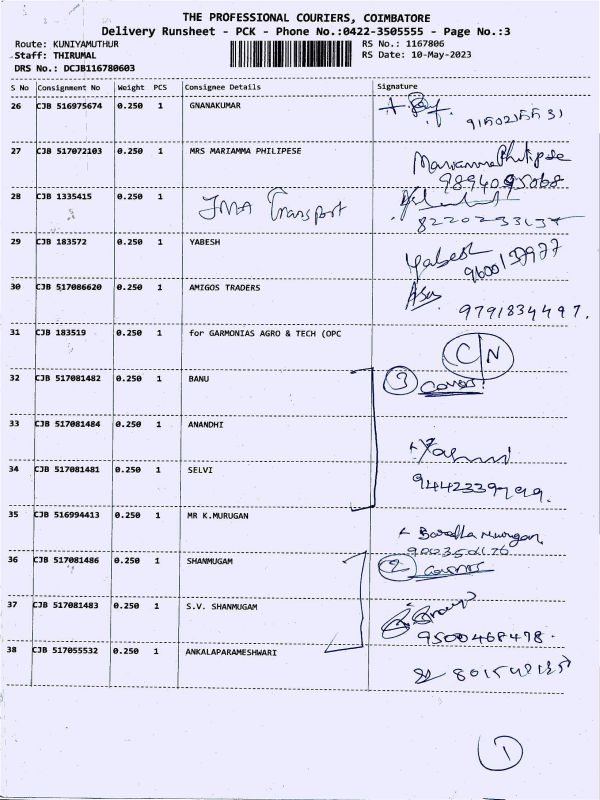 THE PROFESSIONAL COURIERS, COIMBATORE
Delivery Runsheet - PCK - Phone No.:0422-3505555 - Page No.:3
Route: KUNIYAMUTHUR
RS No.: 1167806
Staff: THIRUMAL
RS Date: 10-May-2023
DRS No.: DCJB116780603
S No Consignment No Weight PCS Consignee Details Signature
26 CJB 516975674 0.250 1 GNANAKUMAR
9150215531
27 CJB 517072103 0.250 1 MRS MARIAMMA PHILIPESE Mariamma Philipse
9894095068
28 CJB 1335415 0.250 1 JMA Transport
8220233137
29 CJB 183572 0.250 1 YABESH Yabesh
9600137977
30 CJB 517086620 0.250 1 AMIGOS TRADERS
9791834497.
31 CJB 183519 0.250 1 for GARMONIAS AGRO & TECH (OPC
C/N
32 CJB 517081482 0.250 1 BANU 3 Covers
33 CJB 517081484 0.250 1 ANANDHI
34 CJB 517081481 0.250 1 SELVI
35 CJB 516994413 0.250 1 MR K.MURUGAN
36 CJB 517081486 0.250 1 SHANMUGAM 2 Covers
37 CJB 517081483 0.250 1 S.V. SHANMUGAM
9500468478.
38 CJB 517055532 0.250 1 ANKALAPARAMESHWARI
1